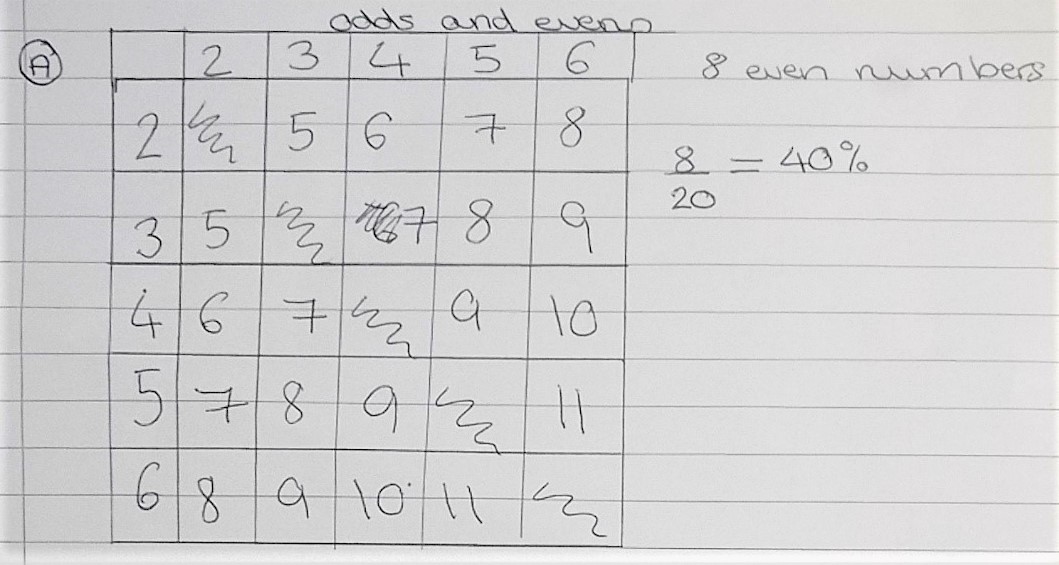 odds and evens
A 2 3 4 5 6 8 even numbers
2 5 6 7 8
8/20 = 40%
3 5 7 8 9
4 6 7 9 10
5 7 8 9 11
6 8 9 10 11